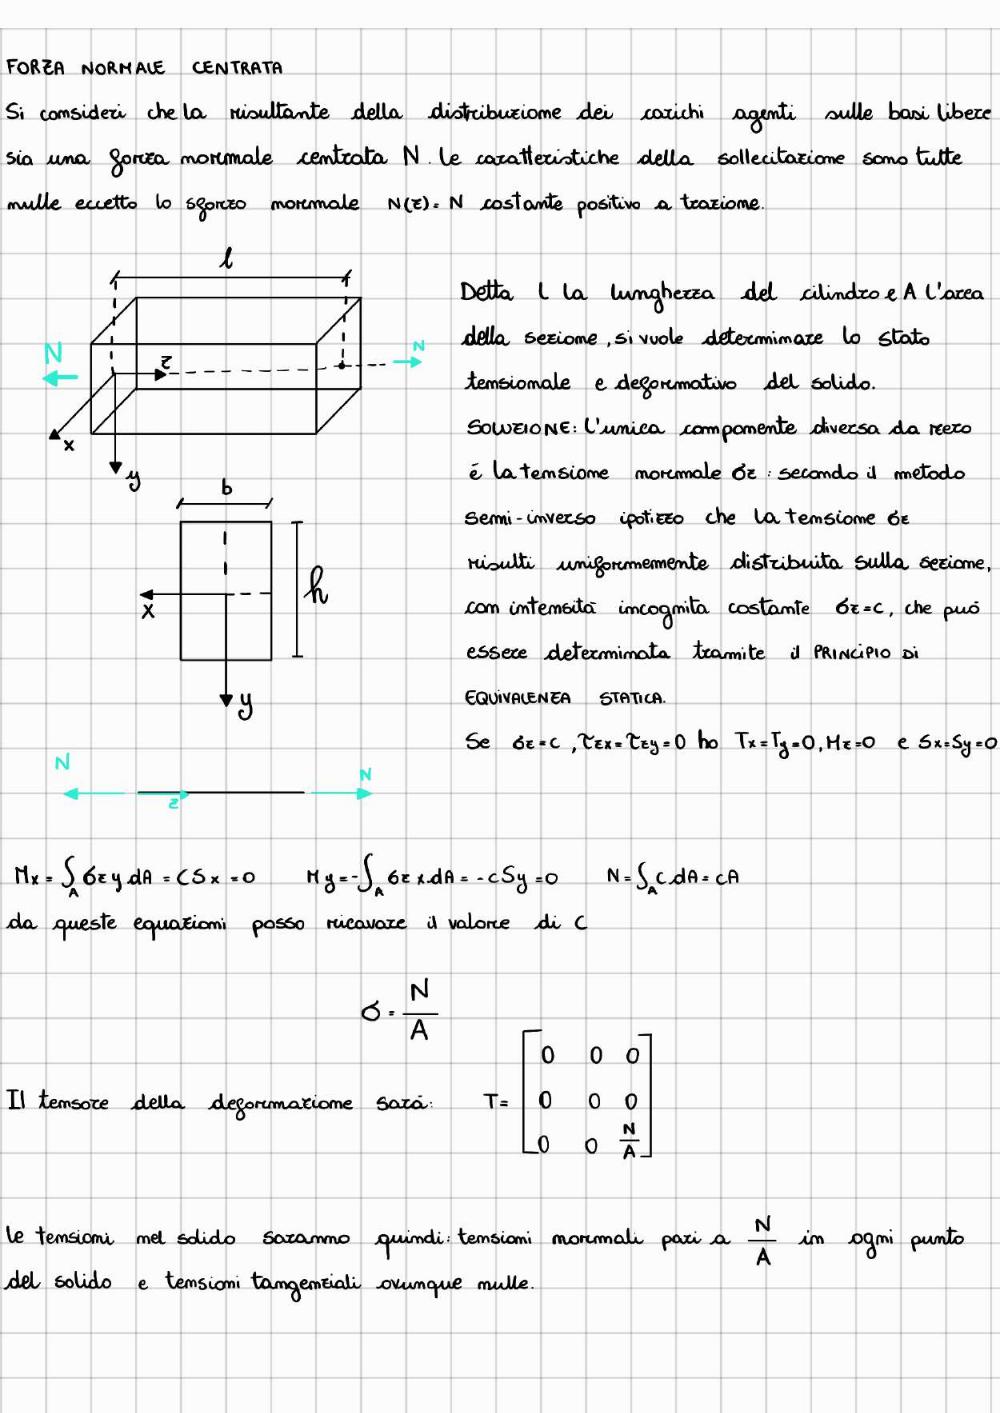 FORZA NORMALE CENTRATA
Si consideri che la risultante della distribuzione dei carichi agenti sulle basi libere
sia una forza normale centrata N. Le caratteristiche della sollecitazione sono tutte
nulle eccetto lo sforzo normale N(z)=N costante positivo a trazione.
l
N
z
N
x
y
Detta L la lunghezza del cilindro e A l'area
della sezione, si vuole determinare lo stato
tensionale e deformativo del solido.
SOLUZIONE: L'unica componente diversa da zero
é la tensione normale σz : secondo il metodo
semi-inverso ipotizzo che la tensione σz
risulti uniformemente distribuita sulla sezione,
con intensità incognita costante σz=c, che può
essere determinata tramite il PRINCIPIO DI
EQUIVALENZA STATICA.
Se σz=c, τzx=τzy=0 ho Tx=Ty=0, Mz=0 e Sx=Sy=0
b
h
x
y
N
N
z
Mx=∫A σz y dA = C Sx = 0 My=-∫A σz x dA = -c Sy = 0 N=∫A C dA = cA
da queste equazioni posso ricavare il valore di C
σ = N/A
Il tensore della deformazione sarà: T= [0 0 0
0 0 0
0 0 N/A]
le tensioni nel solido saranno quindi: tensioni normali pari a N/A in ogni punto
del solido e tensioni tangenziali ovunque nulle.